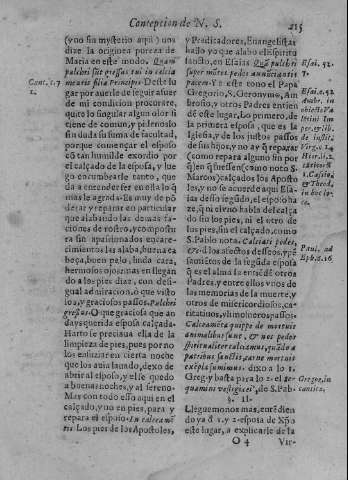 Concepcion de N. S. 215
(y no sin mysterio aqui) nos
dize la originea pureza de
Maria en este modo. Quàm
pulchri sût gressus tui in calcia
mentis filia Principis. Deste lu
gar por auerle de seguir afuer
de mi condicion procurare,
quite lo singular algun olor si
tiene de comun, y perdonolo
sin duda su firma de facultad,
porque començar el esposo
cō tan humilde exordio por
el calçado de la esposa, y lue
go encumbrarle tanto, que
da a entender ser en esta lo q̃
mas le agrada. Es muy de pō
derar y reparar en particular
que alabando las demas fac
ciones de rostro, y compostu
ra sin apassionados encare-
cimientos las alaba, buena ca
beça, buen pelo, linda cara,
hermosos ojos: mas en llegan
do a los pies dize, con desi-
gual admiracion, ò que visto
sos, y graciosos passos. Pulchri
gressus. O que graciosa que an
days querida esposa calçada.
Harto se preciaua ella de la
limpieza de pies, pues por no
los ensuziar en cierta noche
que los auia lauado, dexo de
abrir al esposo, y el se quedo
a buenas noches, y al sereno.
Mas con todo esso aqui en el
calçado, y no en pies, para y
repara el esposo. In calceamē
tis. Los pies de los Apostoles,
y Predicadores, Euangelistas
hallo yo que alabo el Espiritu
santo, en Esaias Quã pulchri
super mōtes pedes annuntiantis
pacem. Y a este tono el Papa
Gregorio, S. Geronymo, Am
brosio, y otros Padres entien
dē este lugar, Lo primero, de
la primera esposa, que es la
Iglesia, y de los justos passos
de sus hijos, y no ay q̃ reparar
(como repara alguno sin por
q̃ (en su
como noto S.
Marom) calçados los Aposto
les, y no se acuerde aqui Esa-
ias desso segũdo, el esposo ha
ze, q̃ ni el vno habla del calça
do sin los pies, ni el otro de
los pies, sin el calçado, como
S. Pablo nota. Calciati pedes,
&c. A los afectos desseos, pẽ
samiētos de la segũda esposa
q̃ es el alma lo entiēdē otros
Padres, y entre ellos vnos de
las memorias de la muerte, y
otros de misericordiosos, ca-
ritatiuos, y limosneros passos.
Calceamēta quippe de mortuis
animalibus sunt, & nos pedes
spiritualiter calceamus, quãdo à
patribus sanctis, carne mortuis
exēpla sumimus. dixo a lo 1.
Greg. y basta para lo 2. el se-
quamini vestigia eius, de S. Pab.
§. II.
Lleguemonos mas, entēdien
do ya d̃ 1. y 2. esposa de Xp̃o
este lugar, a explicarle de la
O 4 Vir-
Cant. c. 7
1.
Esai. 52.
7.
Esai. c. 52
Ambr. in
Paul. ad
Eph. 6. 16
Gregor. in
cantica.